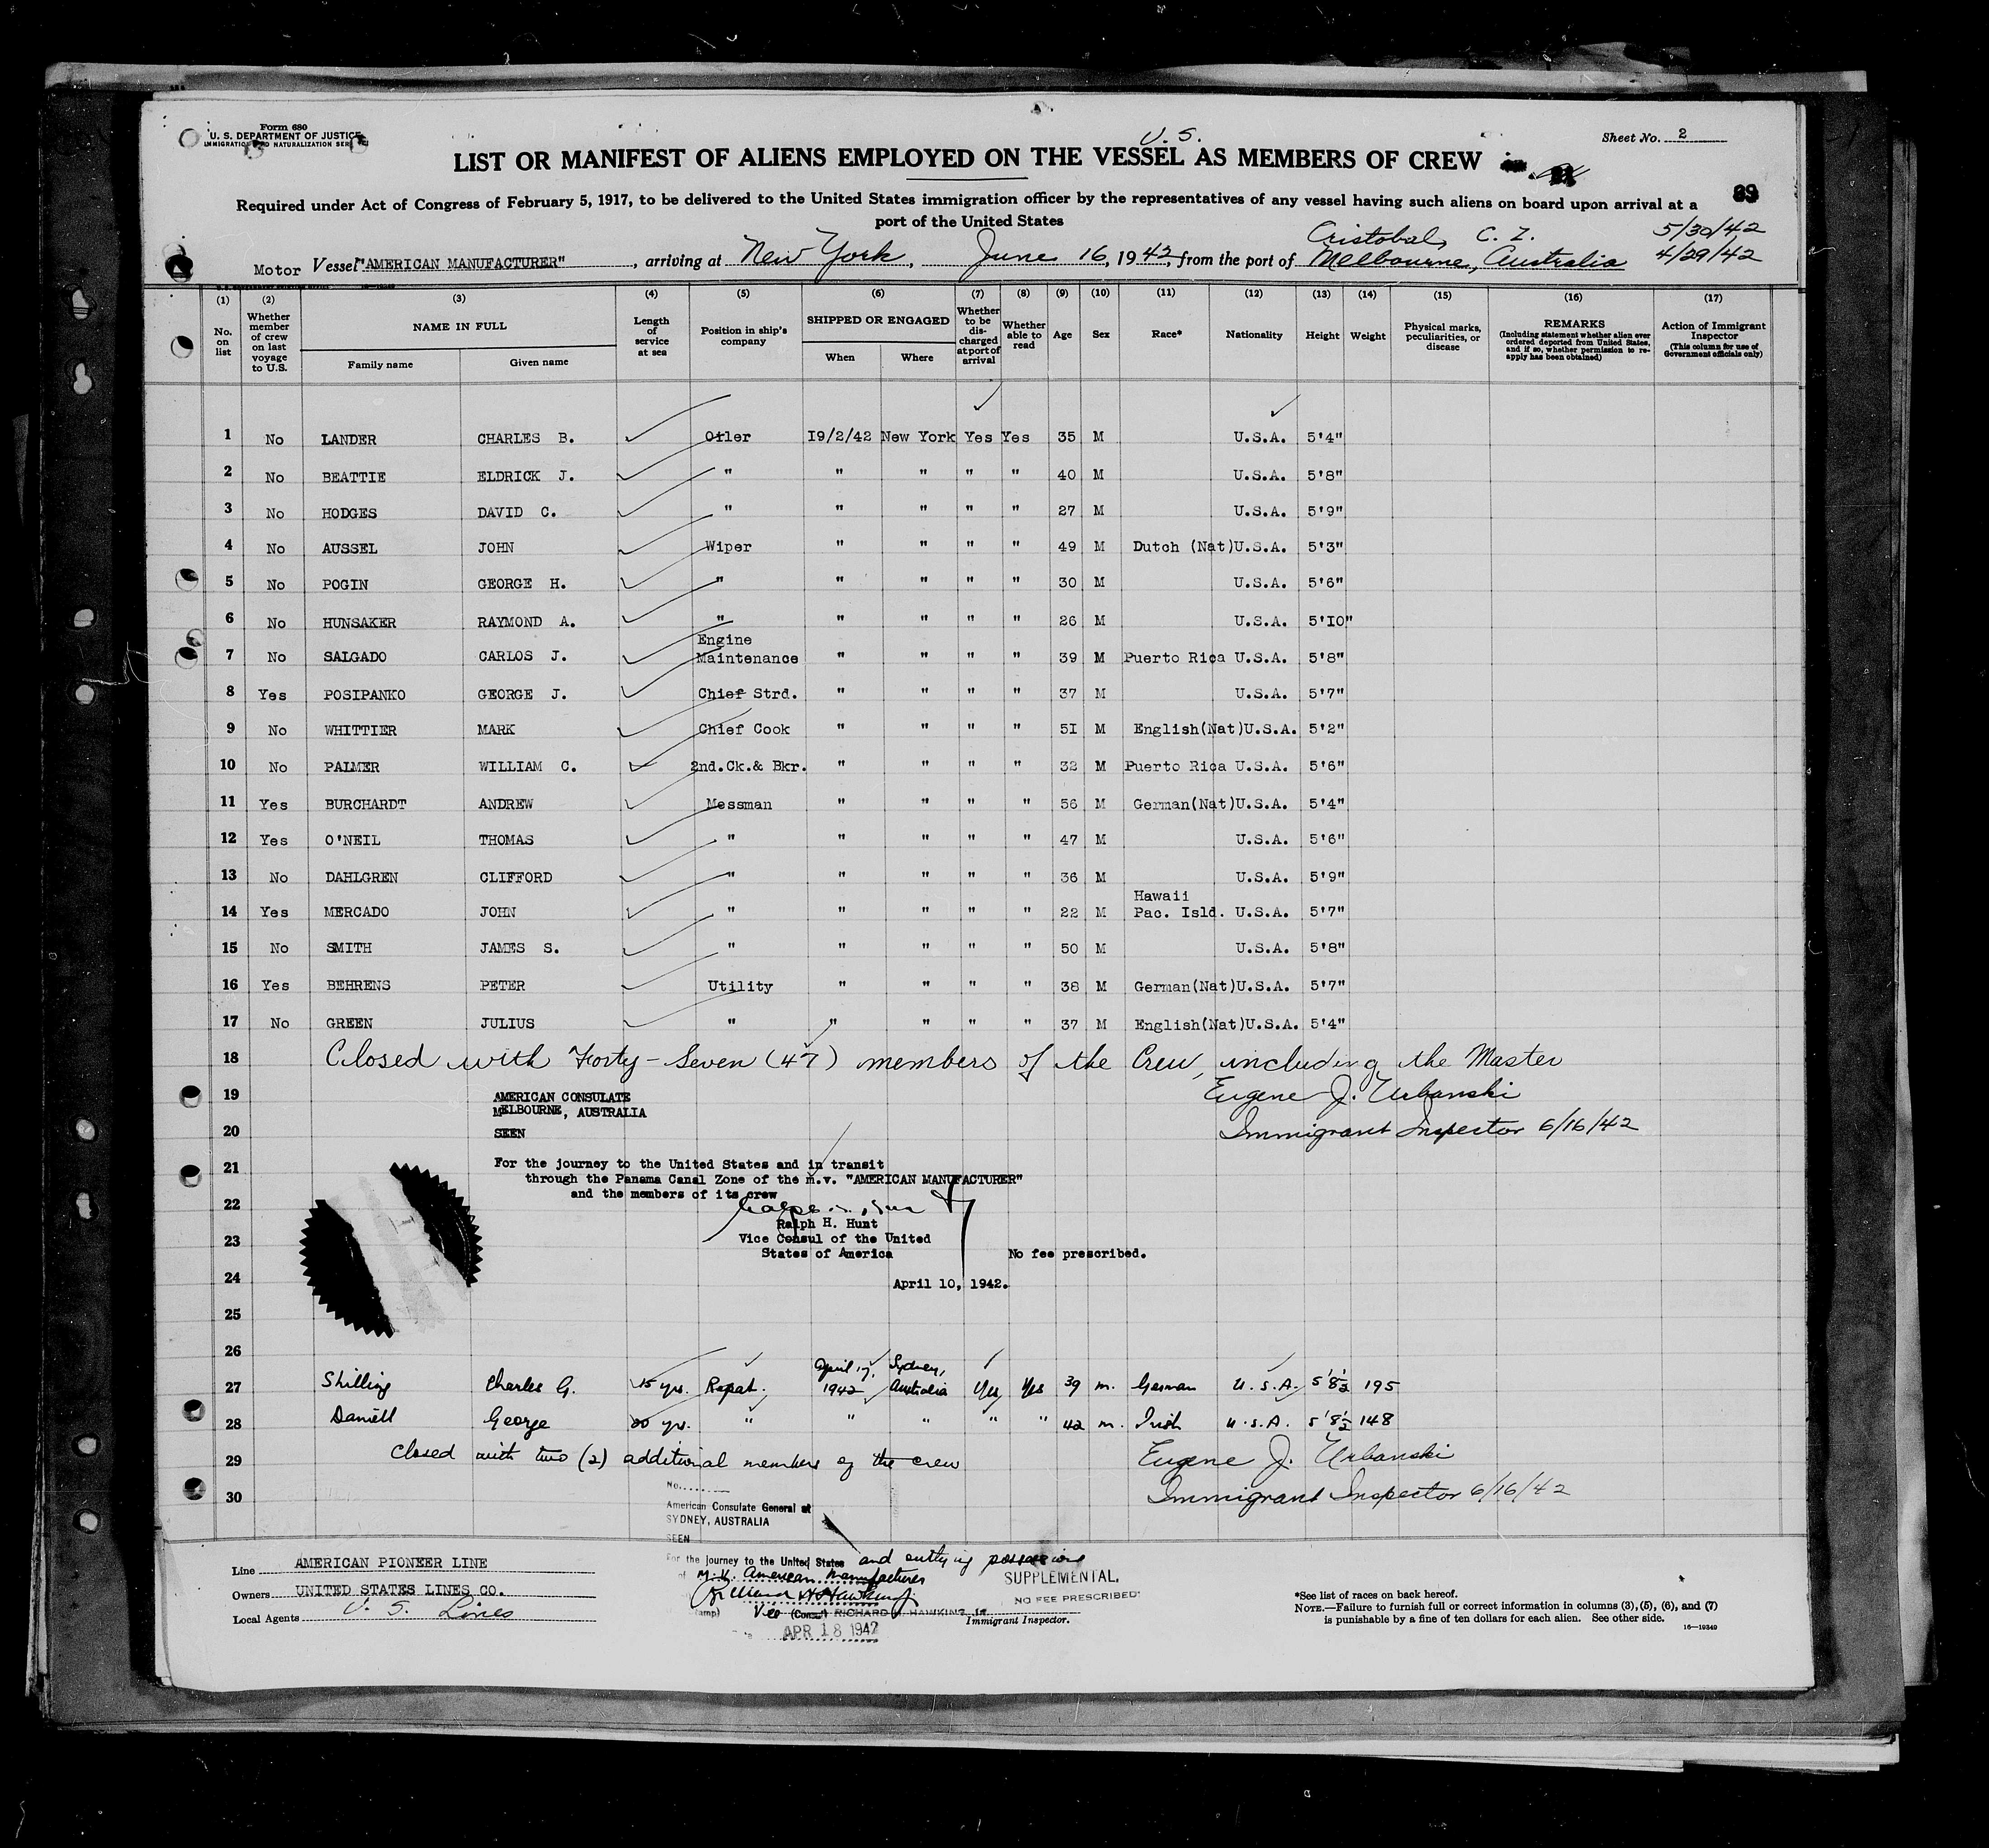 Form 680
U. S. DEPARTMENT OF JUSTICE
IMMIGRATION AND NATURALIZATION SERVICE
Sheet No. 2
U. S.
LIST OR MANIFEST OF ALIENS EMPLOYED ON THE VESSEL AS MEMBERS OF CREW
89
Required under Act of Congress of February 5, 1917, to be delivered to the United States immigration officer by the representatives of any vessel having such aliens on board upon arrival at a
port of the United States
Cristobal, C. Z. 5/30/42
Motor Vessel "AMERICAN MANUFACTURER", arriving at New York, June 16, 1942, from the port of Melbourne, Australia 4/29/42
(1) (2) (3) (4) (5) (6) (7) (8) (9) (10) (11) (12) (13) (14) (15) (16) (17)
No. on list
Whether member of crew on last voyage to U.S.
NAME IN FULL
Family name Given name
Length of service at sea
Position in ship's company
SHIPPED OR ENGAGED
When Where
Whether to be discharged at port of arrival
Whether able to read
Age Sex Race* Nationality Height Weight
Physical marks, peculiarities, or disease
REMARKS
(Including statement whether alien ever ordered deported from United States, and if so, whether permission to reapply has been obtained)
Action of Immigrant Inspector
(This column for use of Government officials only)
1 No LANDER CHARLES B. Oiler I9/2/42 New York Yes Yes 35 M U.S.A. 5'4"
2 No BEATTIE ELDRICK J. " " " " " 40 M U.S.A. 5'8"
3 No HODGES DAVID C. " " " " " 27 M U.S.A. 5'9"
4 No AUSSEL JOHN Wiper " " " " 49 M Dutch (Nat) U.S.A. 5'3"
5 No POGIN GEORGE H. " " " " " 30 M U.S.A. 5'6"
6 No HUNSAKER RAYMOND A. " " " " " 26 M U.S.A. 5'I0"
7 No SALGADO CARLOS J. Engine Maintenance " " " " 39 M Puerto Rica U.S.A. 5'8"
8 Yes POSIPANKO GEORGE J. Chief Strd. " " " " 37 M U.S.A. 5'7"
9 No WHITTIER MARK Chief Cook " " " " 5I M English(Nat) U.S.A. 5'2"
10 No PALMER WILLIAM C. 2nd.Ck.& Bkr. " " " " 32 M Puerto Rica U.S.A. 5'6"
11 Yes BURCHARDT ANDREW Messman " " " " 56 M German(Nat) U.S.A. 5'4"
12 Yes O'NEIL THOMAS " " " " " 47 M U.S.A. 5'6"
13 No DAHLGREN CLIFFORD " " " " " 36 M U.S.A. 5'9"
14 Yes MERCADO JOHN " " " " " 22 M Hawaii Pac. Isld. U.S.A. 5'7"
15 No SMITH JAMES S. " " " " " 50 M U.S.A. 5'8"
16 Yes BEHRENS PETER Utility " " " " 38 M German(Nat) U.S.A. 5'7"
17 No GREEN JULIUS " " " " " 37 M English(Nat) U.S.A. 5'4"
18 Closed with Forty-Seven (47) members of the Crew, including the Master
19 Eugene J. Urbanski
AMERICAN CONSULATE
MELBOURNE, AUSTRALIA
20 Immigrant Inspector 6/16/42
SEEN
21 For the journey to the United States and in transit
through the Panama Canal Zone of the m.v. "AMERICAN MANUFACTURER"
22 and the members of its crew
Ralph H. Hunt
23 Vice Consul of the United
States of America No fee prescribed.
24 April 10, 1942.
25
26
27 Shilling Charles G. 15 yrs. Repat. April 17, 1942 Sydney, Australia Yes Yes 39 m. German U.S.A. 5'8½ 195
28 Daniell George 20 yrs. " " " " " 42 m. Irish U.S.A. 5'8½ 148
29 Closed with two (2) additional members of the crew Eugene J. Urbanski
30 Immigrant Inspector 6/16/42
No.
American Consulate General at
SYDNEY, AUSTRALIA
SEEN
For the journey to the United States and outlying possessions
of M.V. American Manufacturer
SUPPLEMENTAL.
NO FEE PRESCRIBED
Vice (Consul) RICHARD H. HAWKINS Jr.
Immigrant Inspector.
APR 18 1942
Line AMERICAN PIONEER LINE
Owners UNITED STATES LINES CO.
Local Agents U. S. Lines
*See list of races on back hereof.
NOTE.—Failure to furnish full or correct information in columns (3), (5), (6), and (7)
is punishable by a fine of ten dollars for each alien. See other side.
16—19349